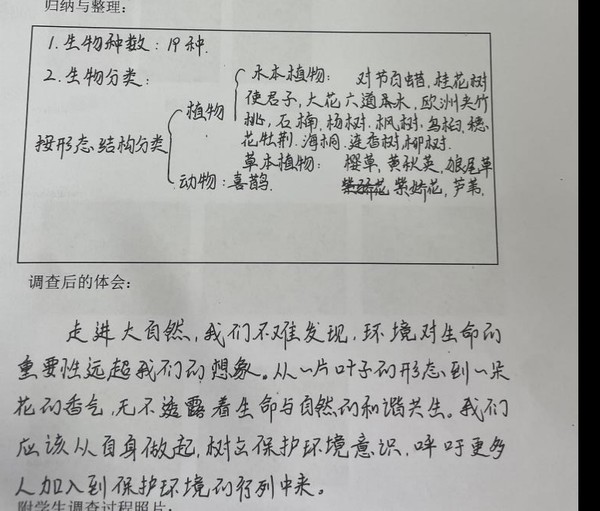 归纳与整理:
1.生物种数:19种.
2.生物分类:
按形态、结构分类
植物
木本植物: 对节白蜡,桂花树
使君子,大花六道木,欧洲夹竹
桃,石楠.杨树.枫树.乌桕,穗
花牡荆.海桐.连香树.柳树.
草本植物: 樱草,黄秋英,狼尾草
紫娇花,芦苇.
动物:喜鹊.
调查后的体会:
走进大自然,我们不难发现,环境对生命的
重要性远超我们的想象。从一片叶子的形态到一朵
花的香气,无不透露着生命与自然的和谐共生。我们
应该从自身做起,树立保护环境意识,呼吁更多
人加入到保护环境的行列中来。
附学生调查过程照片: